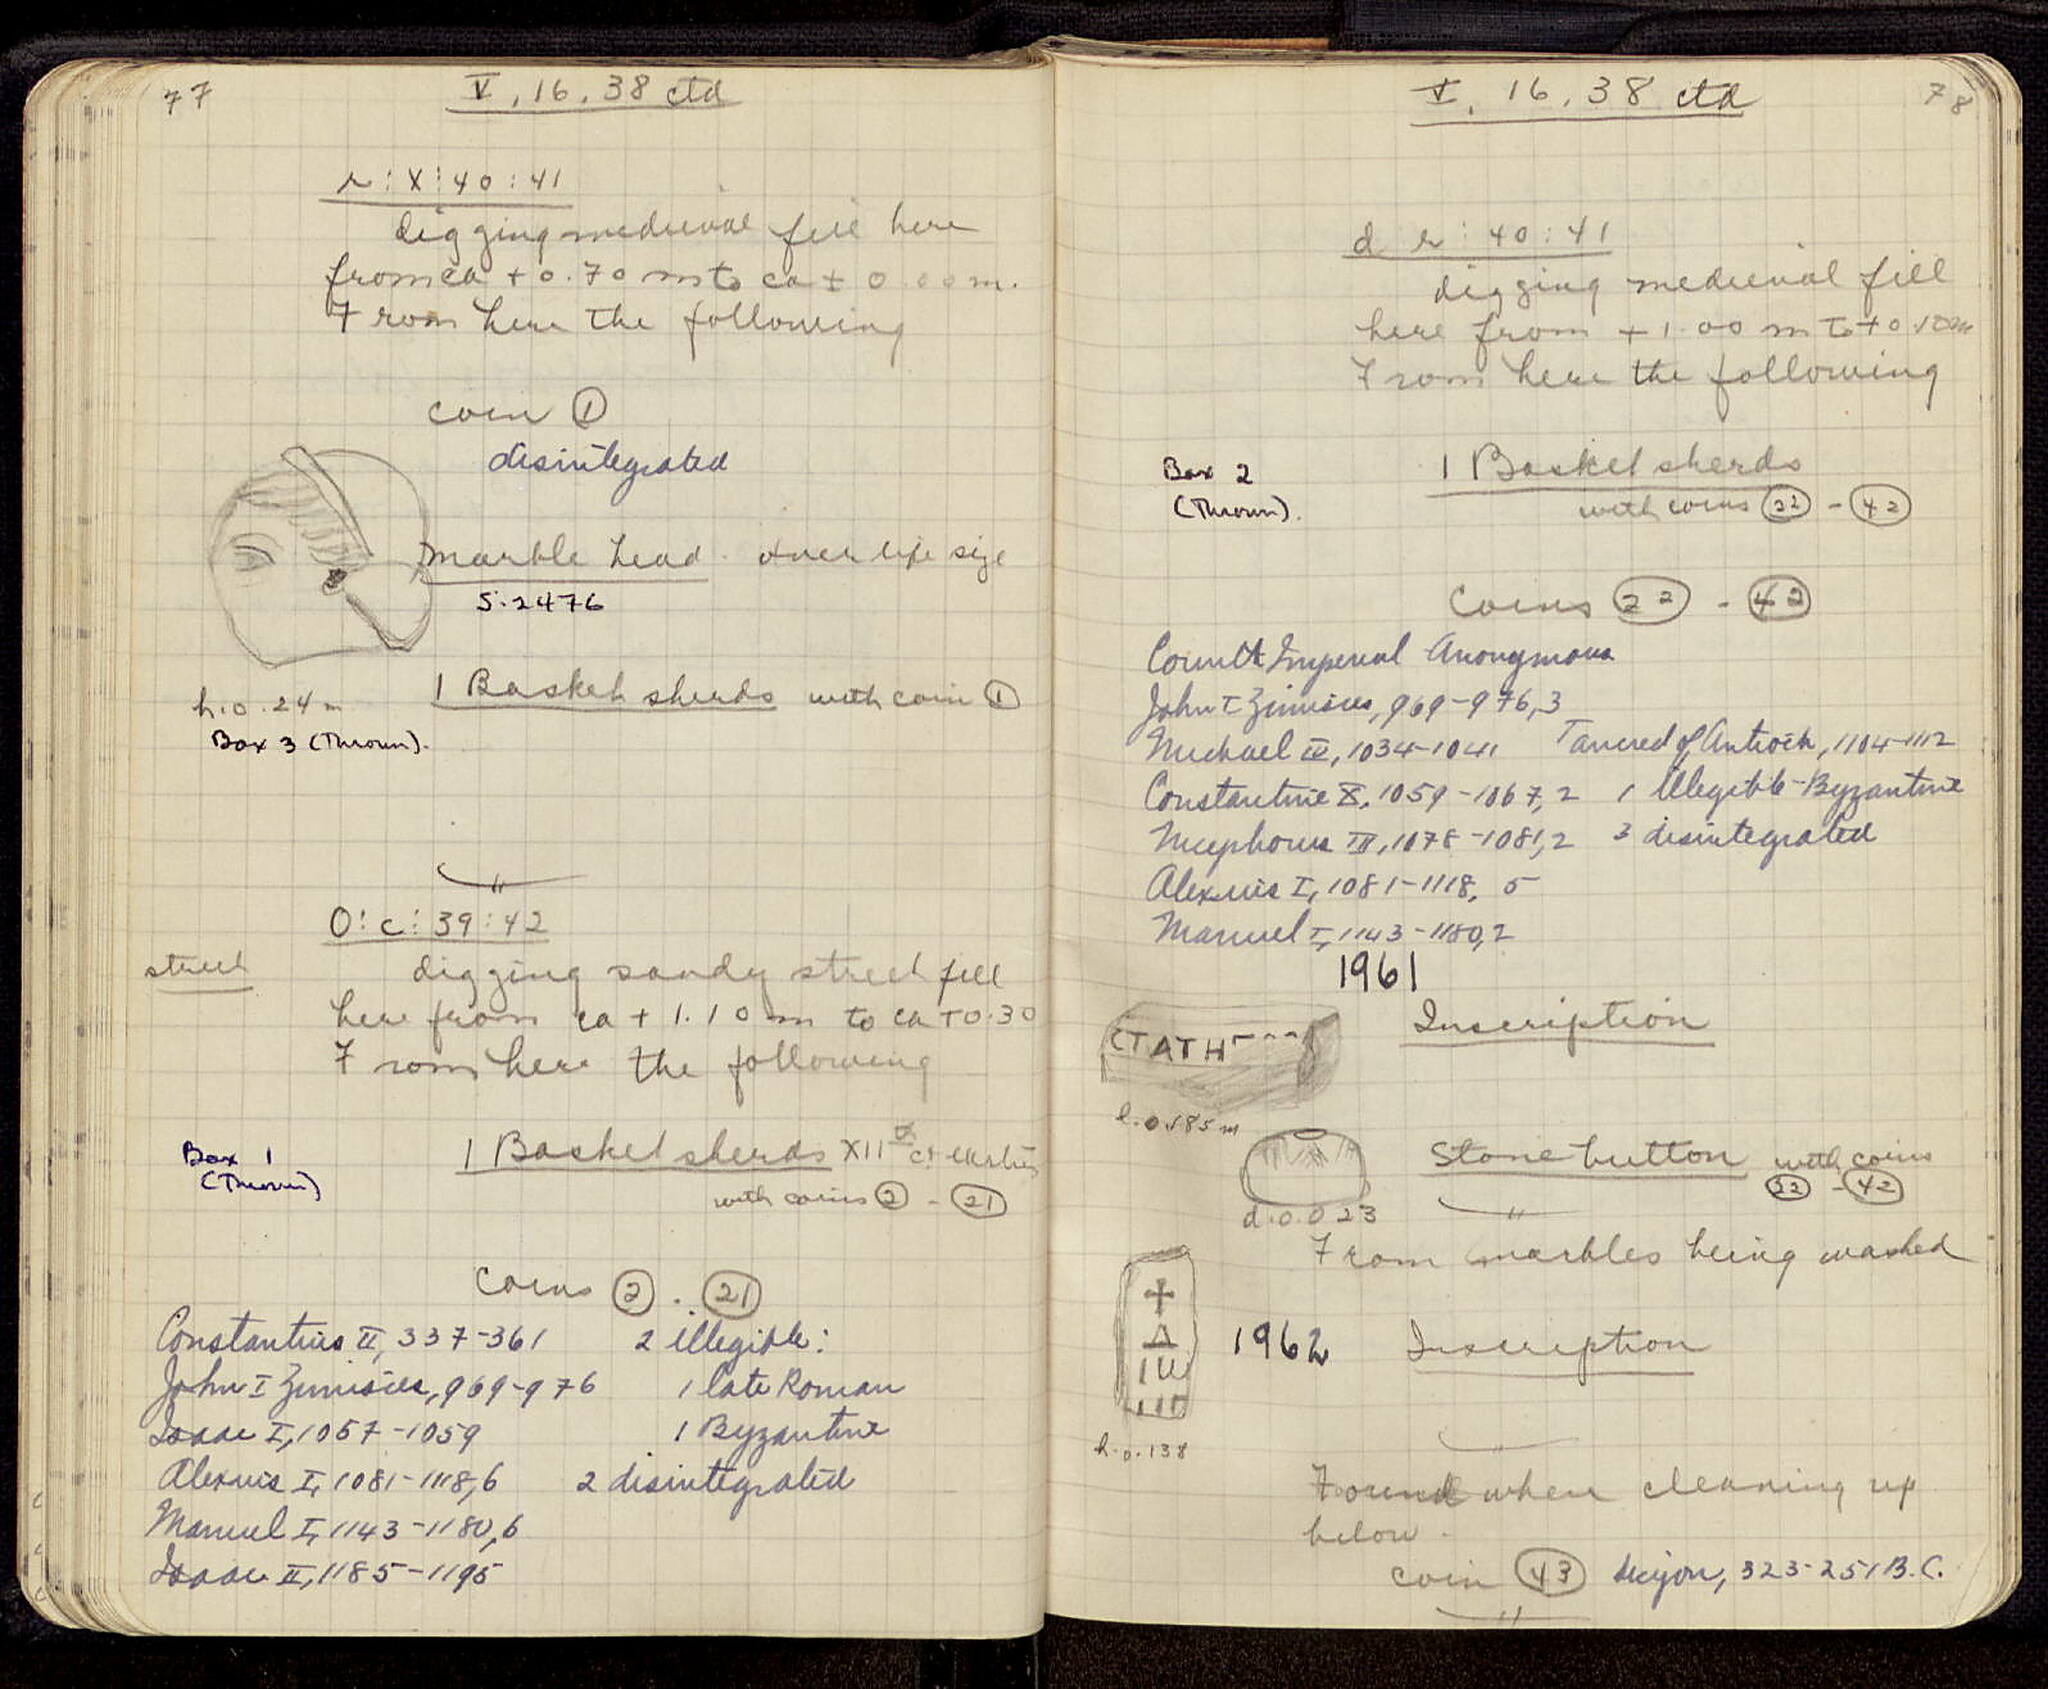 77
V, 16, 38 ctd
r : X : 40 : 41
digging medieval fill here
from ca + 0.70 m to ca ± 0.00 m.
From here the following
coin ①
disintegrated
marble head . over life size
S. 2476
h. 0.24 m
1 Basket sherds with coin ①
Box 3 (Thrown).
"
O : c : 39 : 42
street
digging sandy street fill
here from ca + 1.10 m to ca + 0.30
From here the following
Box 1
(Thrown)
1 Basket sherds XIIth ct
with coins ② - ㉑
coins ② - ㉑
Constantius II, 337-361 2 illegible:
John I Zimisces, 969-976 1 late Roman
Isaac I, 1057-1059 1 Byzantine
Alexius I, 1081-1118, 6 2 disintegrated
Manuel I, 1143-1180, 6
Isaac II, 1185-1195
V, 16, 38 ctd
78
d r : 40 : 41
digging medieval fill
here from + 1.00 m to + 0.10 m
From here the following
Box 2
(Thrown).
1 Basket sherds
with coins ㉒ - ㊷
Coins ㉒ - ㊷
Imperial Anonymous
John I Zimisces, 969-976, 3
Michael IV, 1034-1041 Tancred of Antioch, 1104-1112
Constantine X, 1059-1067, 2 1 illegible-Byzantine
Nicephorus III, 1078-1081, 2 3 disintegrated
Alexius I, 1081-1118, 5
Manuel I, 1143-1180, 2
1961
Inscription
CTATH
l. 0.185 m
Stone button with coins
㉒ - ㊷
d. 0.023
"
From marbles being washed
+
Δ
1962 Inscription
h. 0.138
Found when cleaning up
below.
coin ㊸ Sicyon, 323-251 B.C.
"